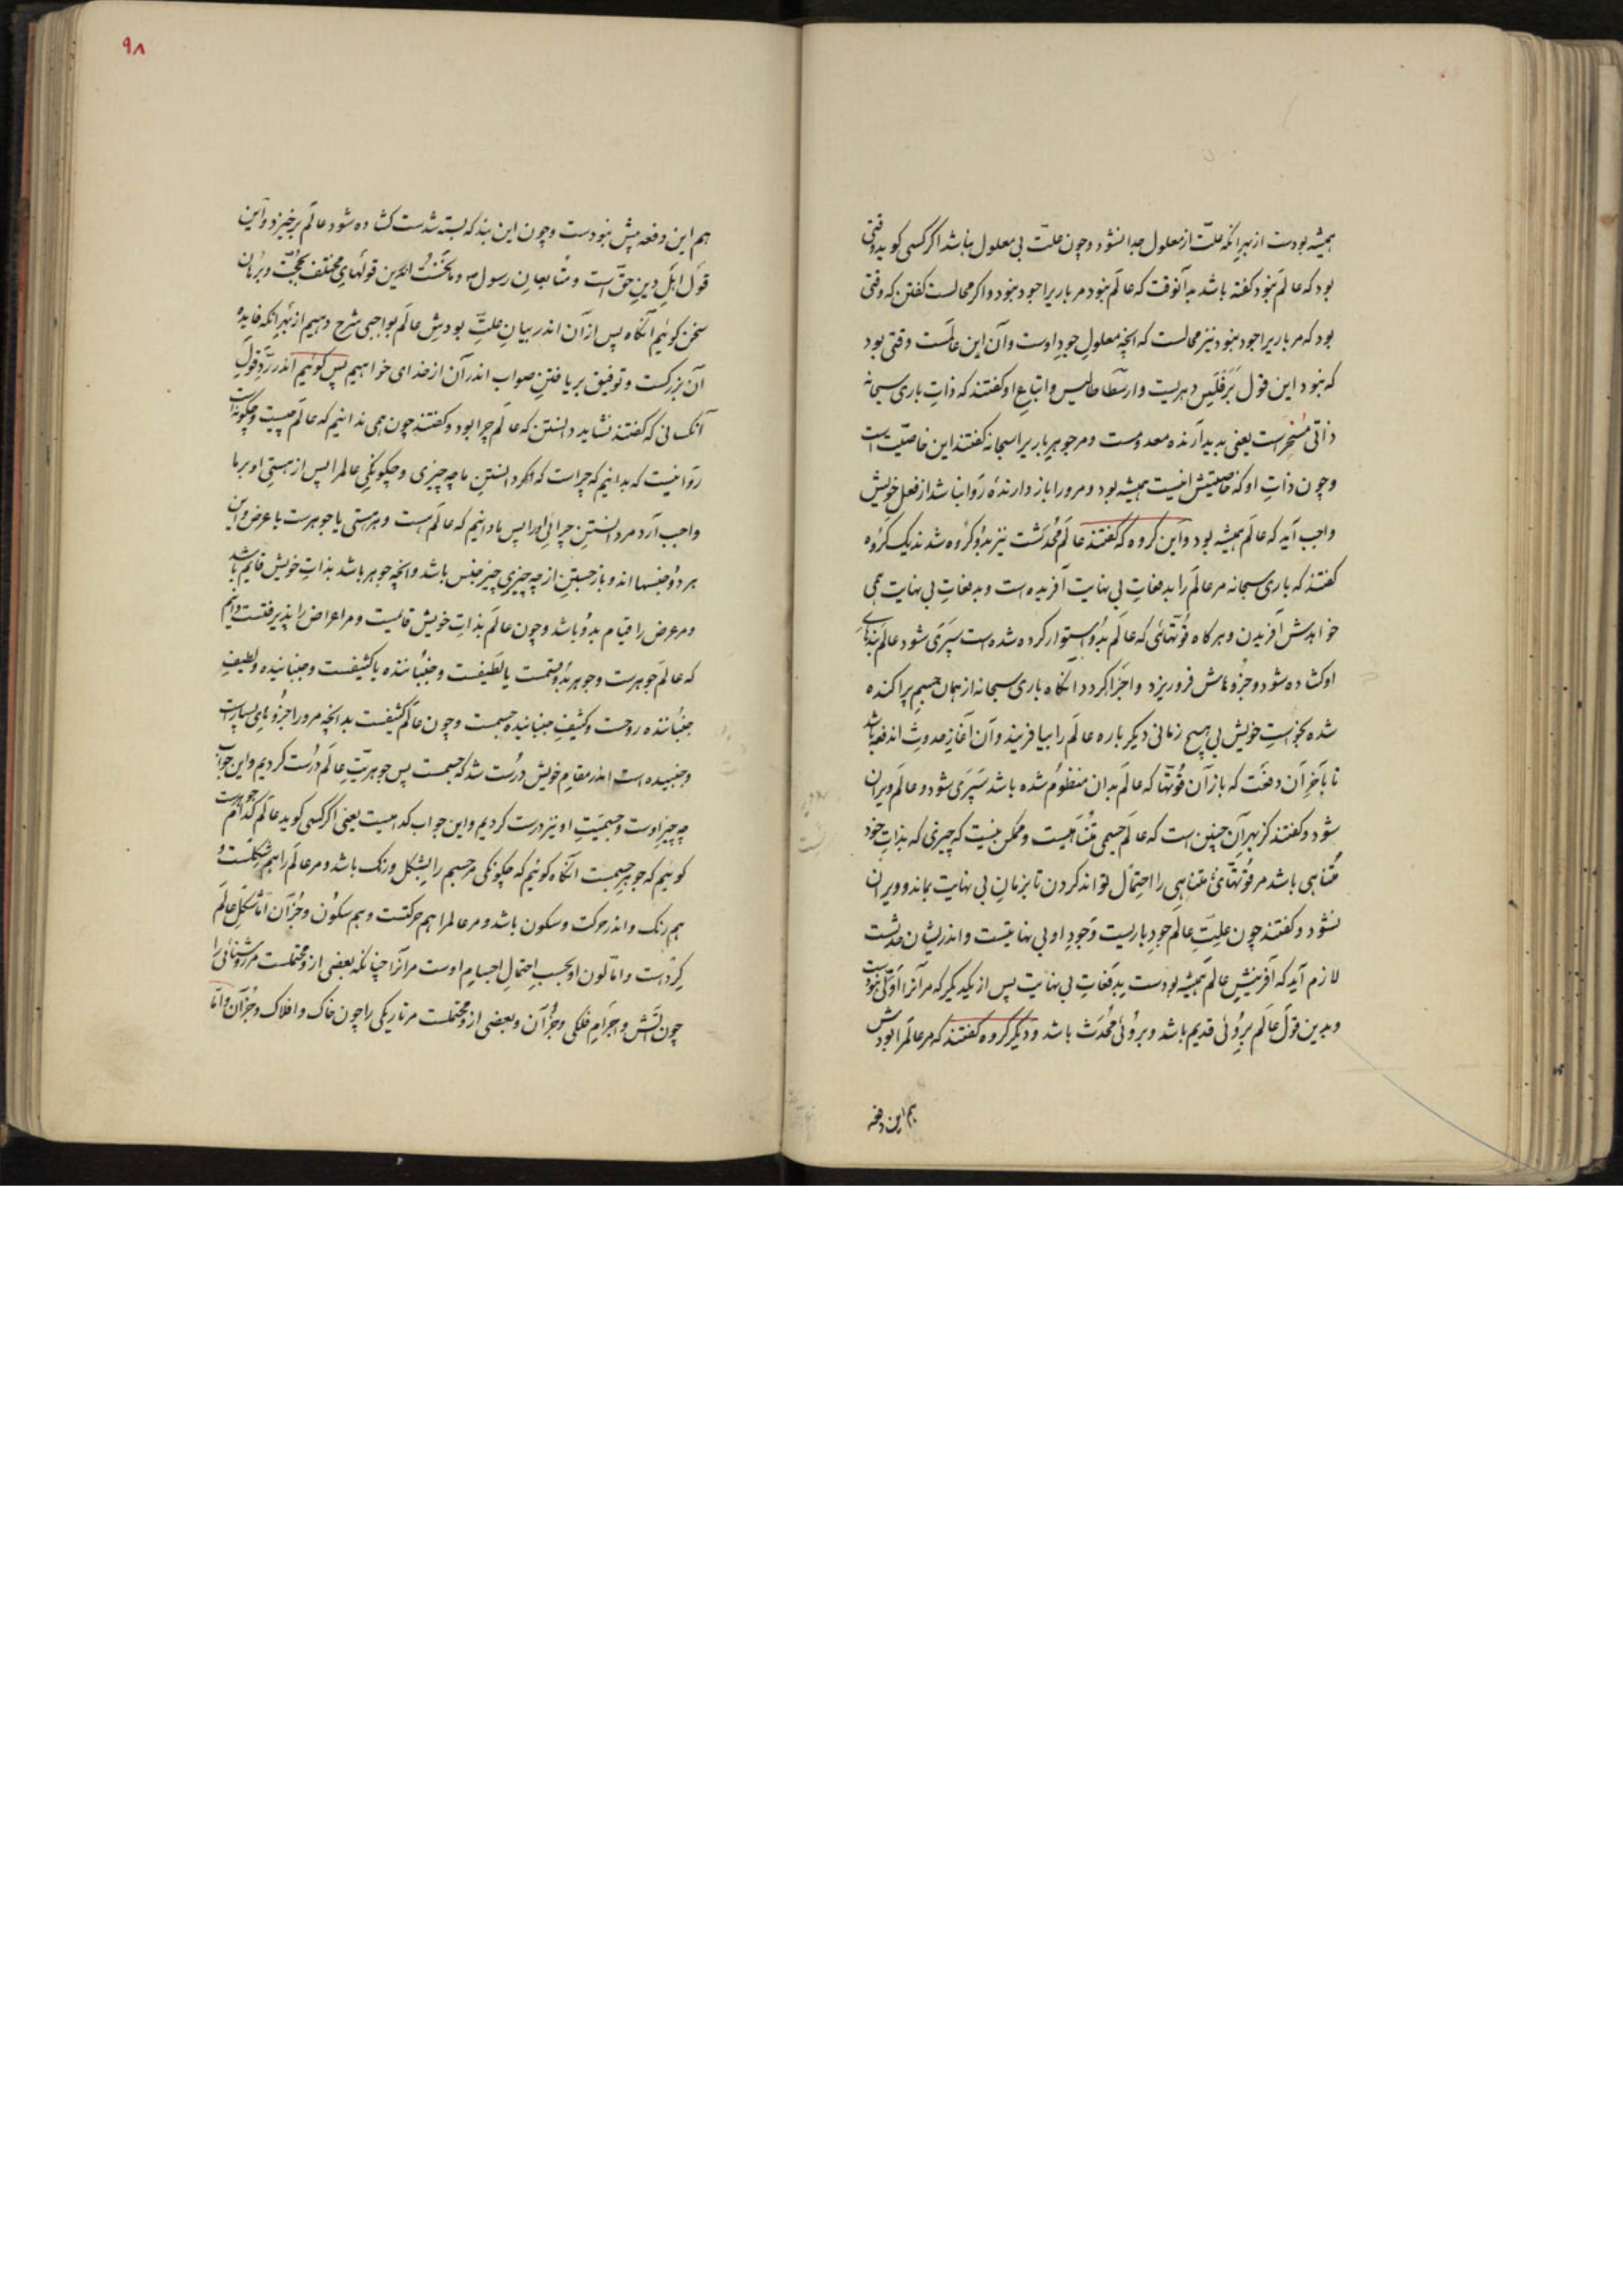 همیشه بودست از بهر انکه علّت از معلول جدا نشود و چون علّت بی معلول نباشد اکر کسی کوید وقتی
بود که عالم نبود کفته باشد بدآنوقت که عالم نبود مر باریرا جود نبود و اکر محالست کفتن که وقتی
بود که مر باریرا جود نبود نیز محالست که انچه معلول جودِ اوست وآن این عالمست وقتی بود
که نبود این قول بَرقلَیس دهریست و ارسطاطالیس و اتباعِ او کفتند که ذاتِ باری سبحانه
ذاتی مُسَخِّرست یعنی پدیدآرنده معدومست و مر جوهرِ باریرا سبحانه کفتند این خاصیّت است
و چون ذاتِ او که خاصیتش اینست همیشه بود و مرورا باز دارندهٔ روا نباشد از فعلِ خویش
واجب آید که عالم همیشه بود و این کروه که کفتند عالَم مُحدَثست نیز بدو کروه شدند یک کروه
کفتند که باری سبحانه مر عالَم را بدفعاتِ بی نهایت آفریده است و بدفعاتِ بی نهایت همی
خواهدش آفریدن و هرکاه قوّتهائی که عالَم بدُو استوار کرده شده است سپَری شود عالَم بندهای
او کشاده شود و جزوهاش فرو ریزد و اجزا کردد انکاه باری سبحانه از همان جسیم پراکنده
شده بخواستِ خویش بی هیچ زمانی دیکر باره عالَم را بیافریند و آن آغازِ حدوث اندفعه باشد
تا بآخرِ آن دفعَت که باز آن قوّتها که عالَم بدان منظوم شده باشد سَپَری شود و عالَم ویران
شود و کفتند کز بهرِ آن چنین است که عالَم جسمی مُتناهیست و ممکن نیست که چیزی که بذاتِ خود
مُتناهی باشد مر قوّتهائیٔ متناهی را احتمال تواند کردن تا بزمانِ بی نهایت بماند و ویران
نشود و کفتند چون علّتِ عالَم جودِ باریست وجودِ او بی نهایتست و اندریشان حدثست
لازم آید که آفرینشِ عالَم همیشه بودست بدفعاتِ بی نهایت پس از یکدیکر که مر آنرا اوّلی نبودست
و بدین قول عالَم بروُئی قدیم باشد و بروُئی مُحدَث باشد و دیکر کروه کفتند که مر عالَمرا بودش
هم این دفعه
٩٨
هم این دفعه پیش نبودست و چون این بند که بسته شدست کشاده شود عالَم برخیزد و این
قول اهلِ دینِ حقّ است و متابعانِ رسولص و ما نخست اندرین قولهای مختلف بحجّت و برهان
سخن کوئیم آنکاه پس از آن اندر بیانِ علّتِ بودشِ عالَم بواجبی شرح دهیم از بهر انکه فایدهٔ
آن بزرکست و توفیق بر یافتنِ صواب اندر آن از خدای خواهیم پس کوئیم اندر ردِّ قولِ
آنکسانی که کفتند نشاید دانستن که عالم چرا بود و کفتند چون همی ندانیم که عالَم چیست و چکونه است
روا نیست که بدانیم که چراست که خرد دانستنِ ما چه چیزی و چکونکیِ عالمرا پس از هستیِ او بر ما
واجب آرد مر دانستنِ چرائیِ اورا پس ما دانیم که عالَم هست و هر هستی یا جوهرست یا عرض و این
هر دو جنسها اند و باز جستنِ از چه چیزیِ چیز جنس باشد و انچه جوهر باشد بذاتِ خویش قایم باشد
و مر عرض را قیام بدو باشد و چون عالَم بذاتِ خویش قایمست و مر اعراض را پذیرفتست دانیم
که عالَم جوهرست و جوهر بدو قسمت یا لطیفست و جنباننده یا کثیفست و جنبانیده و لطیفِ
جنباننده روحست و کثیفِ جنبانیده جسمست و چون عالَم کثیفست بدانچه مرورا جزوهای بسیارست
و جنبیده است اندر مقامِ خویش درُست شد که جسمست پس جوهریّتِ عالَم دُرست کردیم و این جوابِ
چه چیزِ اوست و جسمیّتِ او نیز درست کردیم و این جواب کدامیست یعنی اکر کسی کوید عالَم کدام جوهرست
کوئیم که جوهرِ جسمست آنکاه کوئیم که چکونکی مر جسیم را بشکل و رنک باشد و مر عالَم را هم شکلست و
هم رنک و اندر حرکت و سکون باشد و مر عالمرا هم حرکتست و هم سکون و جُز آن امّا شکلِ عالَم
کِردست و امّا لونِ او بحسبِ احتمالِ اجسامِ اوست مر آنرا چنانکه بعضی از و محتملست مر روشنائی را
چون آتش و اجرامِ فلکی و جُز آن و بعضی از و محتملست مر تاریکی را چون خاک و افلاک و جُز آن و امّا